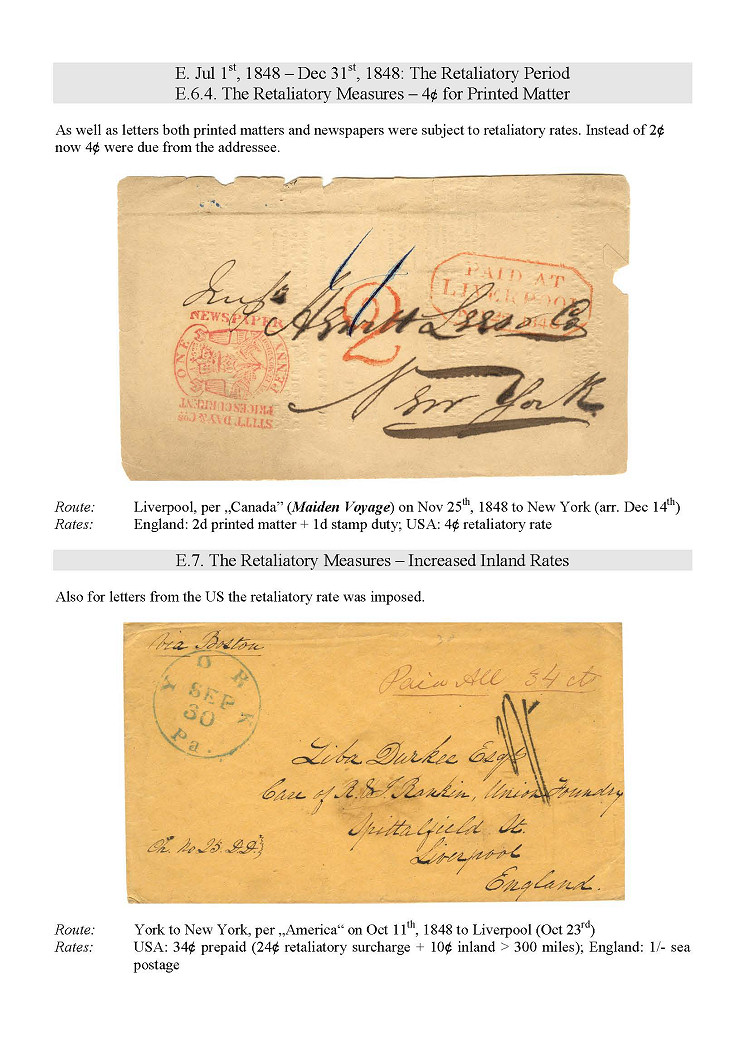 E. Jul 1st, 1848 – Dec 31st, 1848: The Retaliatory Period
E.6.4. The Retaliatory Measures – 4¢ for Printed Matter
As well as letters both printed matters and newspapers were subject to retaliatory rates. Instead of 2¢
now 4¢ were due from the addressee.
PAID AT
LIVERPOOL
1848
2
Hewitt Lees & Co
New York
NEWSPAPER
ONE PENNY
PRICES CURRENT
STITT DAY & Cos
Route: Liverpool, per „Canada” (Maiden Voyage) on Nov 25th, 1848 to New York (arr. Dec 14th)
Rates: England: 2d printed matter + 1d stamp duty; USA: 4¢ retaliatory rate
E.7. The Retaliatory Measures – Increased Inland Rates
Also for letters from the US the retaliatory rate was imposed.
via Boston
YORK
SEP
30
Pa.
Paid All 34 ct
Liba Durkee Esqr
Care of R. & J. Rankin, Union Foundry
Spittalfield St.
Liverpool
England.
Ch. No 25. D.D.
Route: York to New York, per „America“ on Oct 11th, 1848 to Liverpool (Oct 23rd)
Rates: USA: 34¢ prepaid (24¢ retaliatory surcharge + 10¢ inland > 300 miles); England: 1/- sea
postage